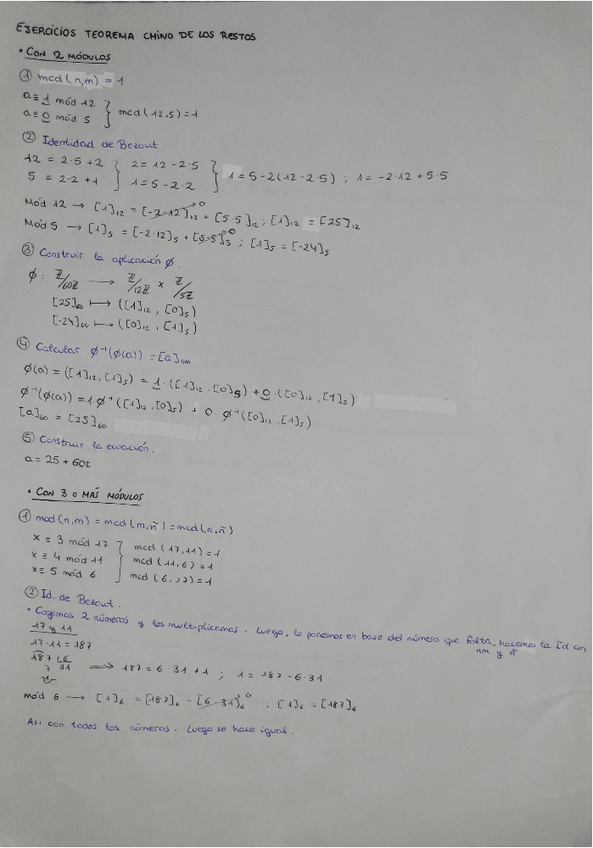 EJERCICIOS TEOREMA CHINO DE LOS RESTOS
• CON 2 MÓDULOS
① mcd(n,m) = 1
a ≡ 1 mód 12
a ≡ 0 mód 5 } mcd(12,5)=1
② Identidad de Bezout
12 = 2·5+2 } 2 = 12-2·5
5 = 2·2+1 } 1 = 5-2·2 } 1 = 5-2(12-2·5) ; 1 = -2·12+5·5
Mód 12 → [1]₁₂ = [-2·12]₁₂ + [5·5]₁₂ ; [1]₁₂ = [25]₁₂
Mód 5 → [1]₅ = [-2·12]₅ + [5·5]₅ ; [1]₅ = [-24]₅
③ Construir la aplicación ϕ.
ϕ: ℤ/60ℤ → ℤ/12ℤ × ℤ/5ℤ
[25]₆₀ ⟼ ([1]₁₂, [0]₅)
[-24]₆₀ ⟼ ([0]₁₂, [1]₅)
④ Calcular ϕ⁻¹(ϕ(a)) = [a]nm
ϕ(a) = ([1]₁₂, [1]₅) = 1·([1]₁₂, [0]₅) + 0·([0]₁₂, [1]₅)
ϕ⁻¹(ϕ(a)) = 1·ϕ⁻¹([1]₁₂, [0]₅) + 0 ϕ⁻¹([0]₁₂, [1]₅)
[a]₆₀ = [25]₆₀
⑤ Construir la ecuación.
a = 25 + 60t
• CON 3 O MÁS MÓDULOS
① mcd(n,m) = mcd(m,ñ) = mcd(n,ñ)
x ≡ 3 mód 17 } mcd(17,11)=1
x ≡ 4 mód 11 } mcd(11,6)=1
x ≡ 5 mód 6 } mcd(6,17)=1
② Id. de Bezout.
• Cogemos 2 números y los multiplicamos. Luego, lo ponemos en base del número que falta, hacemos la Id con
nm y ñ
17 y 11
17·11 = 187
187 6
7 31 ⟹ 187 = 6·31+1 ; 1 = 187-6·31
mód 6 → [1]₆ = [187]₆ - [6·31]₆ 0 , [1]₆ = [187]₆
Así con todos los números. Luego se hace igual.